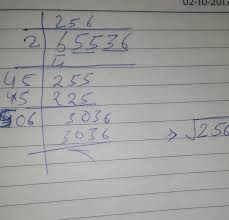 02-10-2017
256
2 65536
4
45 255
45 225
506 3036
3036
⇒ √256